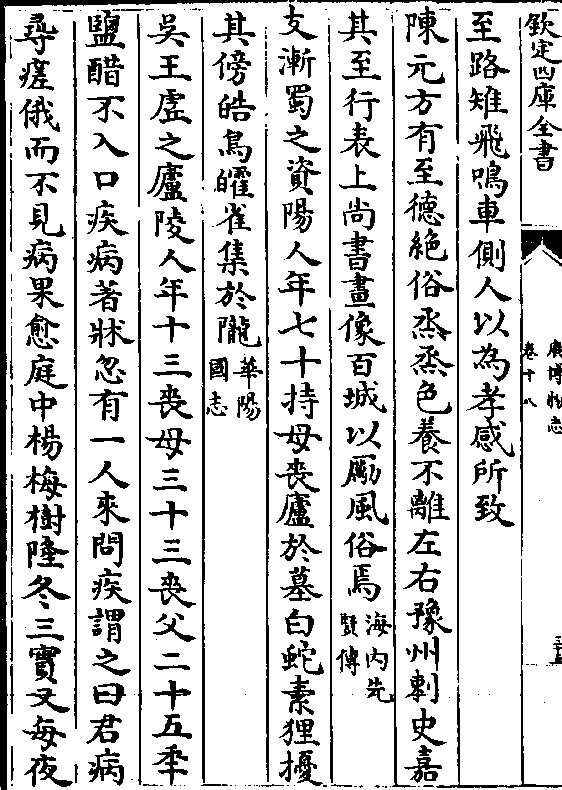 欽定四庫全書
廣博物志
卷十八
至路雉飛鳴車側人以為孝感所致
陳元方有至德絶俗烝烝色養不離左右豫州刺史嘉
其至行表上尚書畫像百城以勵風俗焉海内先賢傳
支漸蜀之資陽人年七十持母喪廬於墓白蛇素狸擾
其傍皓烏皬雀集於隴華陽國志
吳王虛之廬陵人年十三喪母三十三喪父二十五年
鹽醋不入口疾病著牀忽有一人來問疾謂之曰君病
尋瘥俄而不見病果愈庭中楊梅樹隆冬三實又每夜